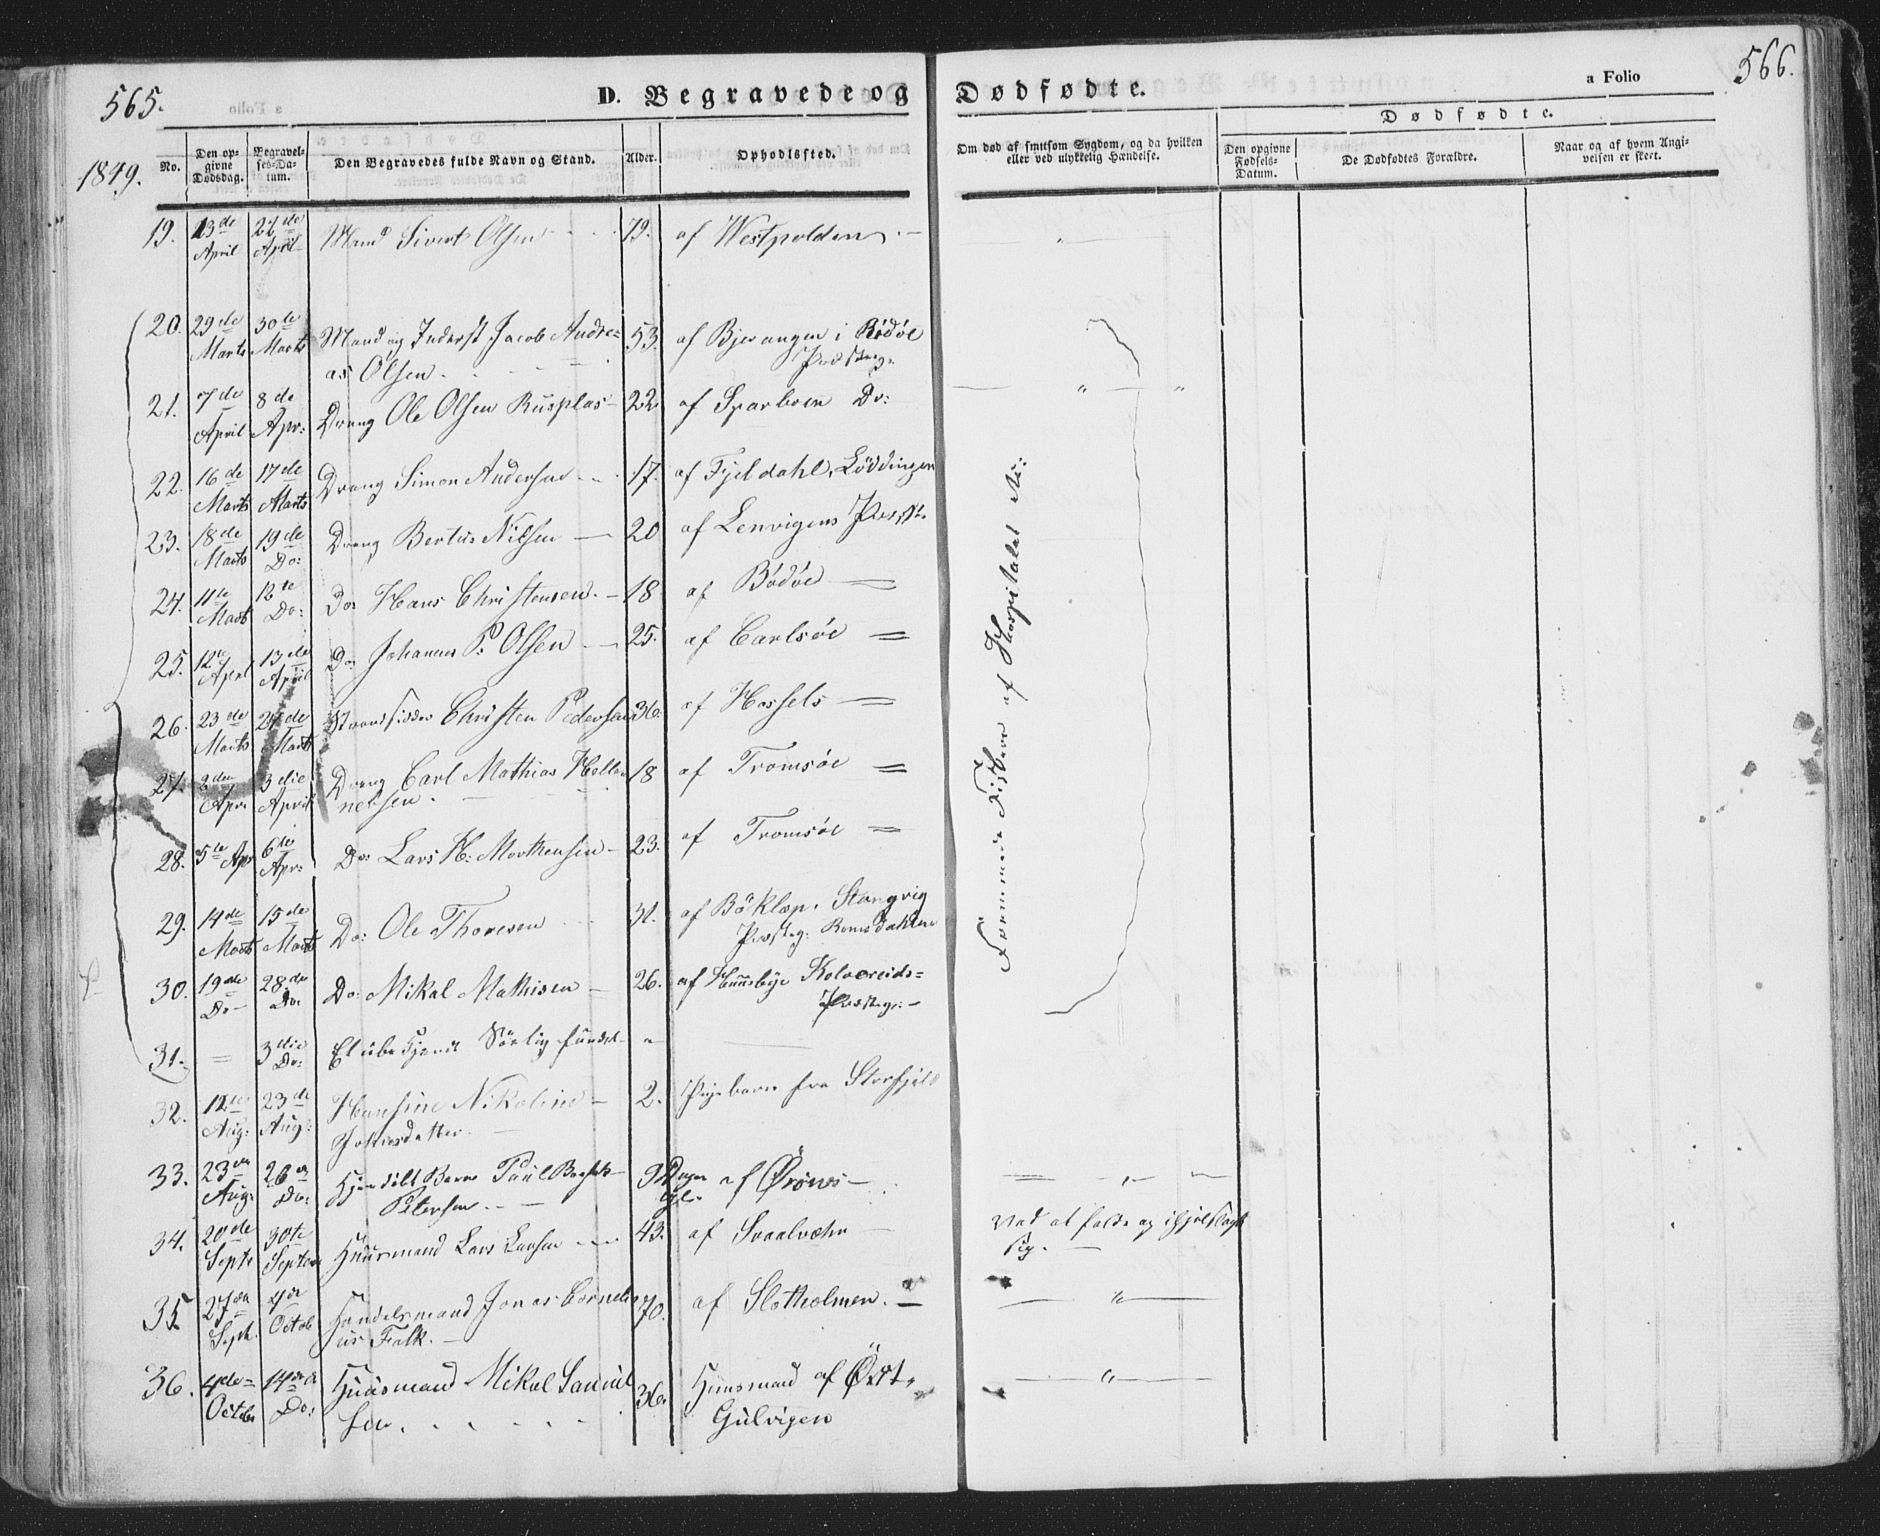 565.
a Folio
D. Begravede og
Dødfødte.
a Folio
566.
1849.
No.
Den op-
givne
Dødsdag.
Begravel-
ses-Da-
tum.
Den Begravedes fulde Navn og Stand.
Alder.
Opholdssted.
Om død af smitsom Sygdom, og da hvilken
eller ved ulykkelig Hændelse.
Dødfødte.
Den opgivne
Fødsels-
Datum.
De Dødfødtes Forældre.
Naar og af hvem Angi-
velsen er skeet.
19. 13de 22de Mand Sivert Olsen 79. af Westpolden.
April April
20. 29de 30te Mand og Inderst Jacob Andre= 53. af Bjerangen i Rödöe
Marts Marts as Olsen. Præsteg.
21. 7de 8de Dreng Ole Olsen Rusplas 22. af Sparboen Do:
April Apr:
22. 16de 17de Dreng Simon Andersen 17. af Fjeldahl, Löddingen
Marts Marts
23. 18de 19de Dreng Bertus Nilsen 20 af Lenvigens Præst.
Marts Do:
24. 11te 12te Do: Hans Christensen 18 af Bodöe
Marts Do:
25. 12te 13de Do: Johannes P. Olsen 25. af Carlsöe
April April
26. 23de 24de Strandsidder Christen Pedersen 36. af Hassels
Marts Marts
27. 2den 3die Dreng Carl Mathias Hellen 18 af Tromsöe
Apr. April nelsen.
28. 5te Apr 6te Do: Lars H: Morthensen 23. af Tromsöe
Apr:
29. 14de 15de Do: Ole Thoresen 31. af Böklep, Stangvig
Marts Marts Præsteg: Romsdahlen
30. 19de 28de Do: Mikal Mathisen 26. af Kolvereids=
Do Do: Præsteg:
31. 3die Et ubekjendt Sörlig fundet
Do:
32. 12te 23de Hansine Nikoline 2. Pigebarn fra Storfjeld
Aug: Aug:
33. 23de 26de Hjemdöbt Barn Paul 9 Dager af Ørönes
Aug: Do: Petersen gl.
34. 20de 30te Huusmand Lars Larsen 43. af Svaalvæhr Ved at falde og ihjelslage
Septr Septem sig.
35. 27de 7de Handelsmand Jonas Corneli 70. af Slotholmen.
Septr. Octob us Falk.
36. 4de 14de Huusmand Mikal Samuel 36. Huusmand af
October Do: sen. Gulvigen
Fremmede Fiskere af Hospitalet